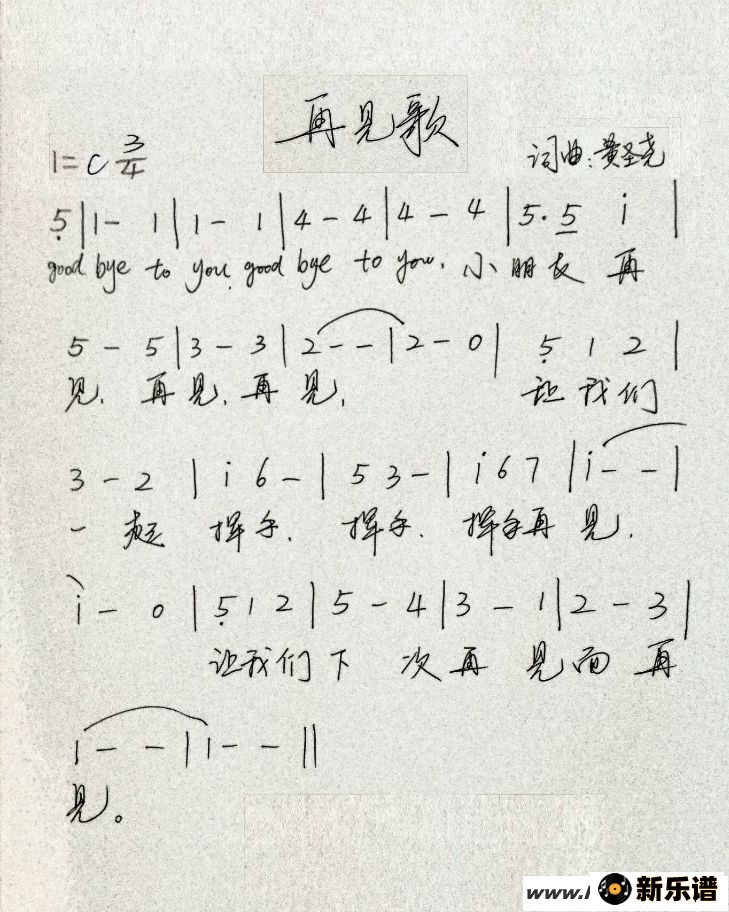 再见歌
1=C 3/4
词曲:黄圣尧
5̣ | 1 - 1 | 1 - 1 | 4 - 4 | 4 - 4 | 5. 5̲ i |
good bye to you. good bye to you. 小朋友 再
5 - 5 | 3 - 3 | 2 - - | 2 - 0 | 5̣ 1 2 |
见. 再见. 再见. 让我们
3 - 2 | i 6 - | 5 3 - | i 6 7 | i - - |
一起 挥手. 挥手. 挥手再见.
i - 0 | 5̣ 1 2 | 5 - 4 | 3 - 1 | 2 - 3 |
让我们下次再见面再
1 - - | 1 - - ||
见。
www. 新乐谱